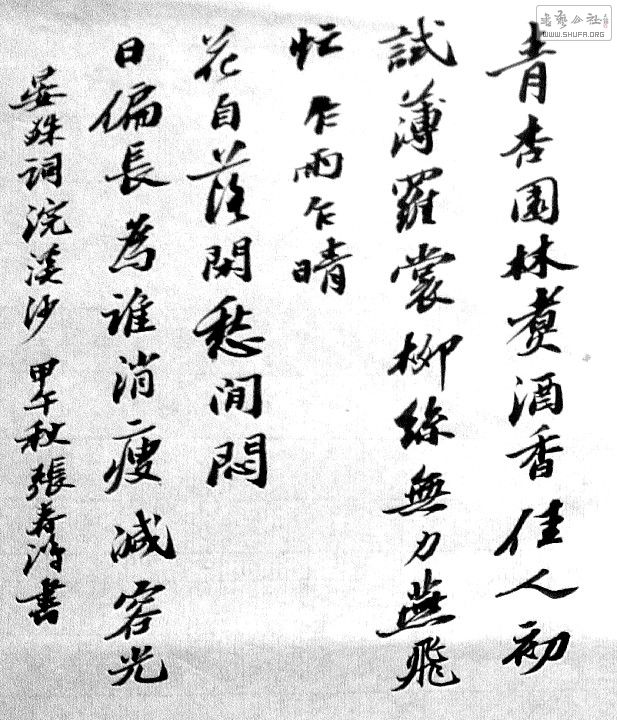 青杏園林煑酒香佳人初
試薄羅裳柳絲無力燕飛
忙乍雨乍晴
花自落閑愁閒悶
日偏長為誰消瘦減容光
晏殊詞浣溪沙 甲午秋張春 書
書藝公社
WWW.SHUFA.ORG